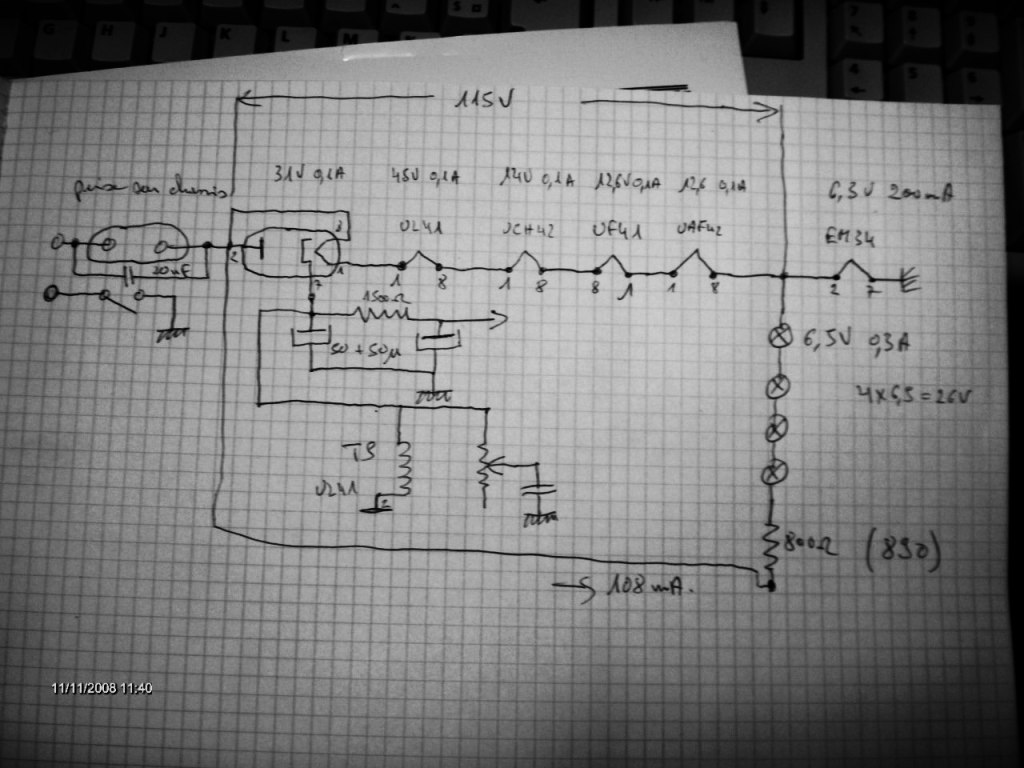 115V
prise sur chassis
31V 0,1A
45V 0,1A
14V 0,1A
12,6V 0,1A
12,6 0,1A
6,3V 200mA
UL41
UCH42
UF41
UAF42
EM34
2
1
1
8
1
8
8
1
1
8
2
7
20nF
7
1500Ω
50 + 50µ
6,5V 0,3A
4x6,5=26V
TS
UL41
2
800Ω (890)
→ 108 mA.
11/11/2008 11:40
G H J K L M
7 8 9
4 5 6